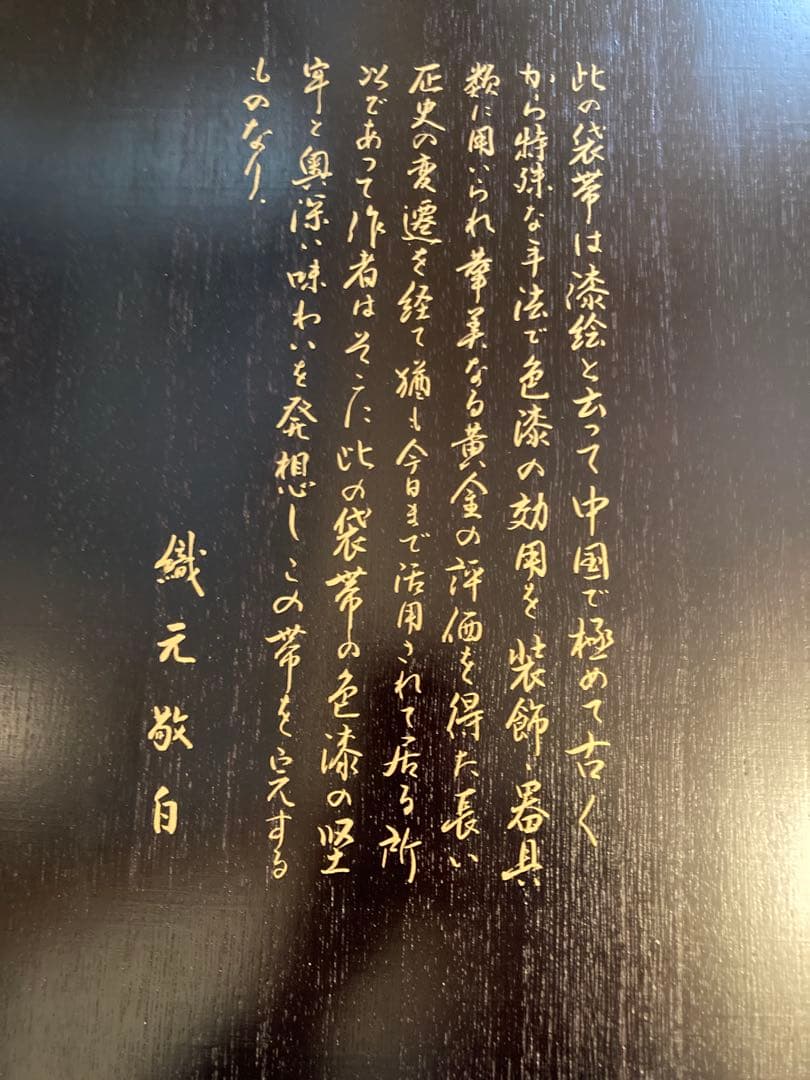 此の袋帯は漆絵と云って中国で極めて古く
から特殊な手法で色漆の効用を装飾、器具
類に用いられ華美なる黄金の評価を得た長い
歴史の変遷を経て猶も今日まで活用されて居る所
以であって作者はそこに此の袋帯の色漆の堅
牢と奥深い味わいを発想しこの帯を完する
ものなり.
織元敬白